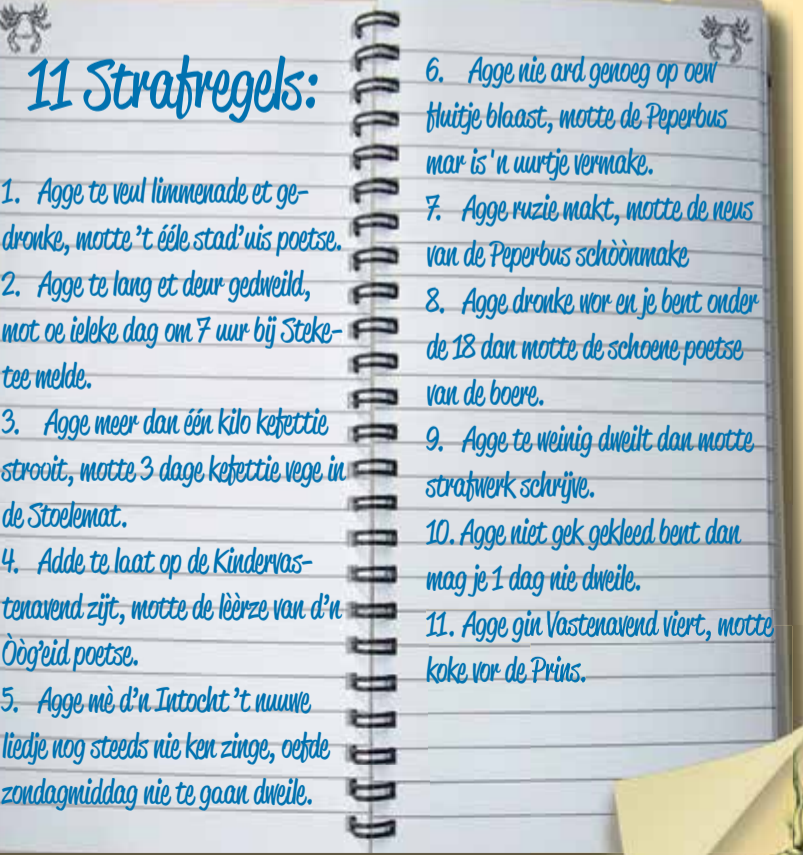 11 Strafregels:
1. Agge te veul limmenade et ge-
dronke, motte 't ééle stad'uis poetse.
2. Agge te lang et deur gedweild,
mot oe ieleke dag om 7 uur bij Steke-
tee melde.
3. Agge meer dan één kilo kefettie
strooit, motte 3 dage kefettie vege in
de Stoelemat.
4. Adde te laat op de Kindervas-
tenavend zijt, motte de lèèrze van d'n
Òòg'eid poetse.
5. Agge mè d'n Intocht 't nuuwe
liedje nog steeds nie ken zinge, oefde
zondagmiddag nie te gaan dweile.
6. Agge nie ard genoeg op oew
fluitje blaast, motte de Peperbus
mar is 'n uurtje vermake.
7. Agge ruzie makt, motte de neus
van de Peperbus schòònmake
8. Agge dronke wor en je bent onder
de 18 dan motte de schoene poetse
van de boere.
9. Agge te weinig dweilt dan motte
strafwerk schrijve.
10. Agge niet gek gekleed bent dan
mag je 1 dag nie dweile.
11. Agge gin Vastenavend viert, motte
koke vor de Prins.